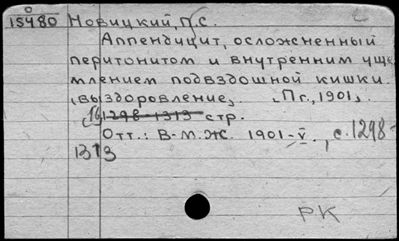 15480 Новицкий, П.С.
Аппендицит, осложненный
перитонитом и внутренним уще
млением подвздошной кишки.
(выздоровление). [Пг., 1901].
[16] 1298-1313 стр.
Отт.: В-М.Ж. 1901-V, с. 1298-
1313
РК